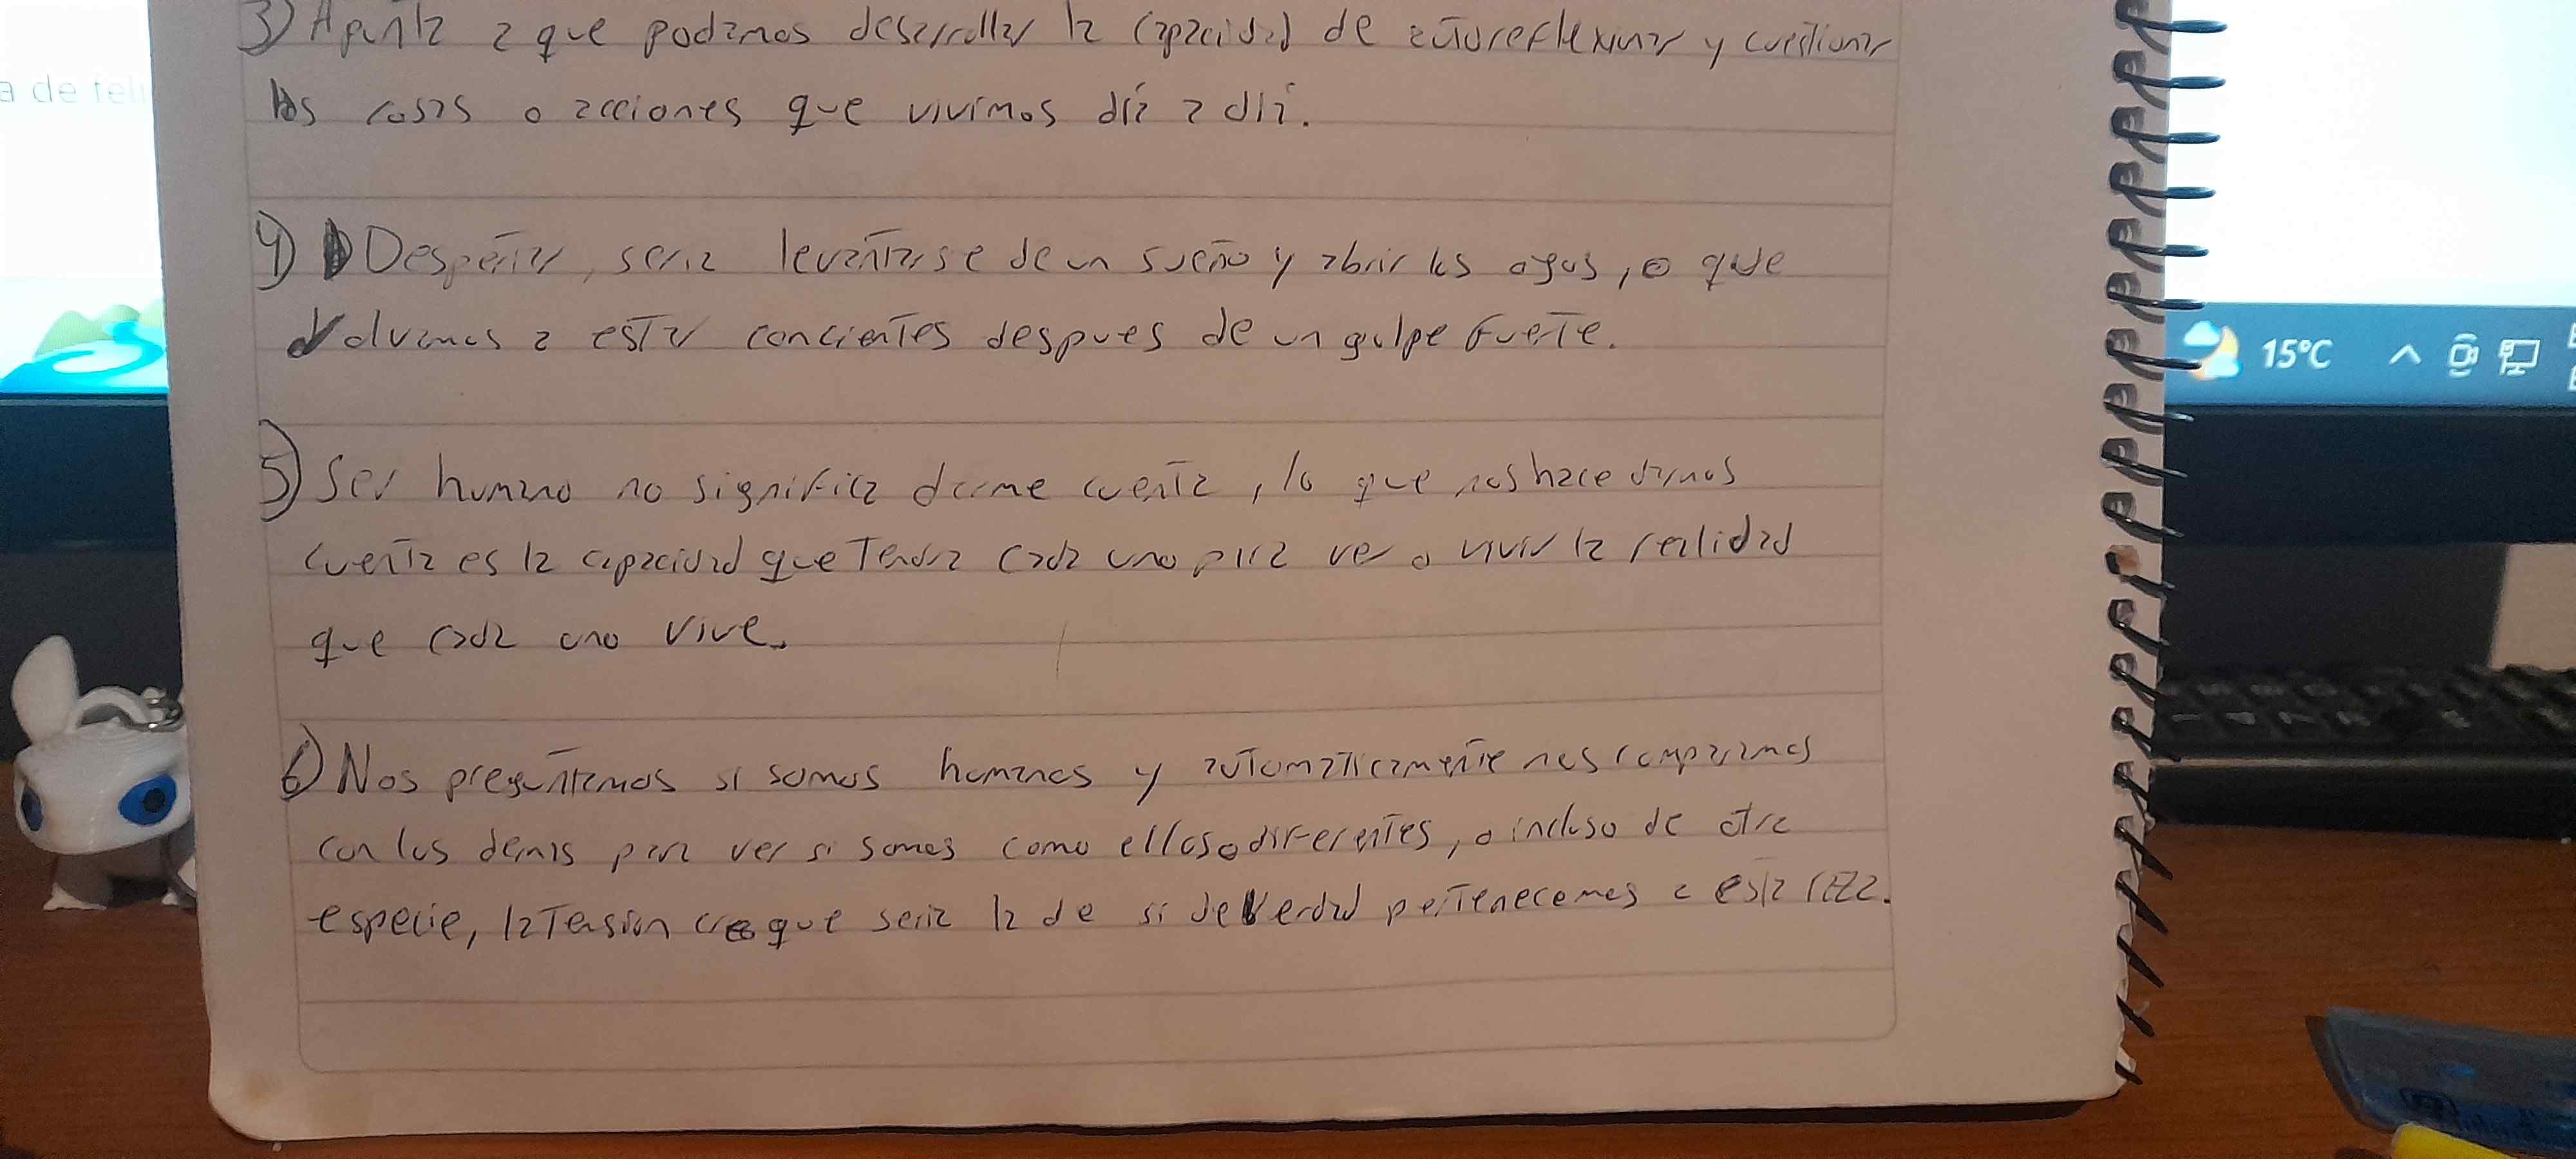 3) Apunta a que podamos desarrollar la capacidad de autoreflexionar y cuestionar
las cosas o acciones que vivimos día a día.
4) Despertar, seria levantarse de un sueño y abrir los ogos, o que
volvamos a estar concientes despues de un golpe fuerte.
5) Ser humano no significa darme cuenta, lo que nos hace darnos
cuenta es la capacidad que tendra cada uno para ver o vivir la realidad
que cada uno vive.
6) Nos preguntamos si somos humanos y automaticamente nos comparamos
con los demas para ver si somos como ellos o diferentes, o incluso de otra
especie, la tension creo que seria la de si de verdad pertenecemos a esta raza.
a de feli
15°C